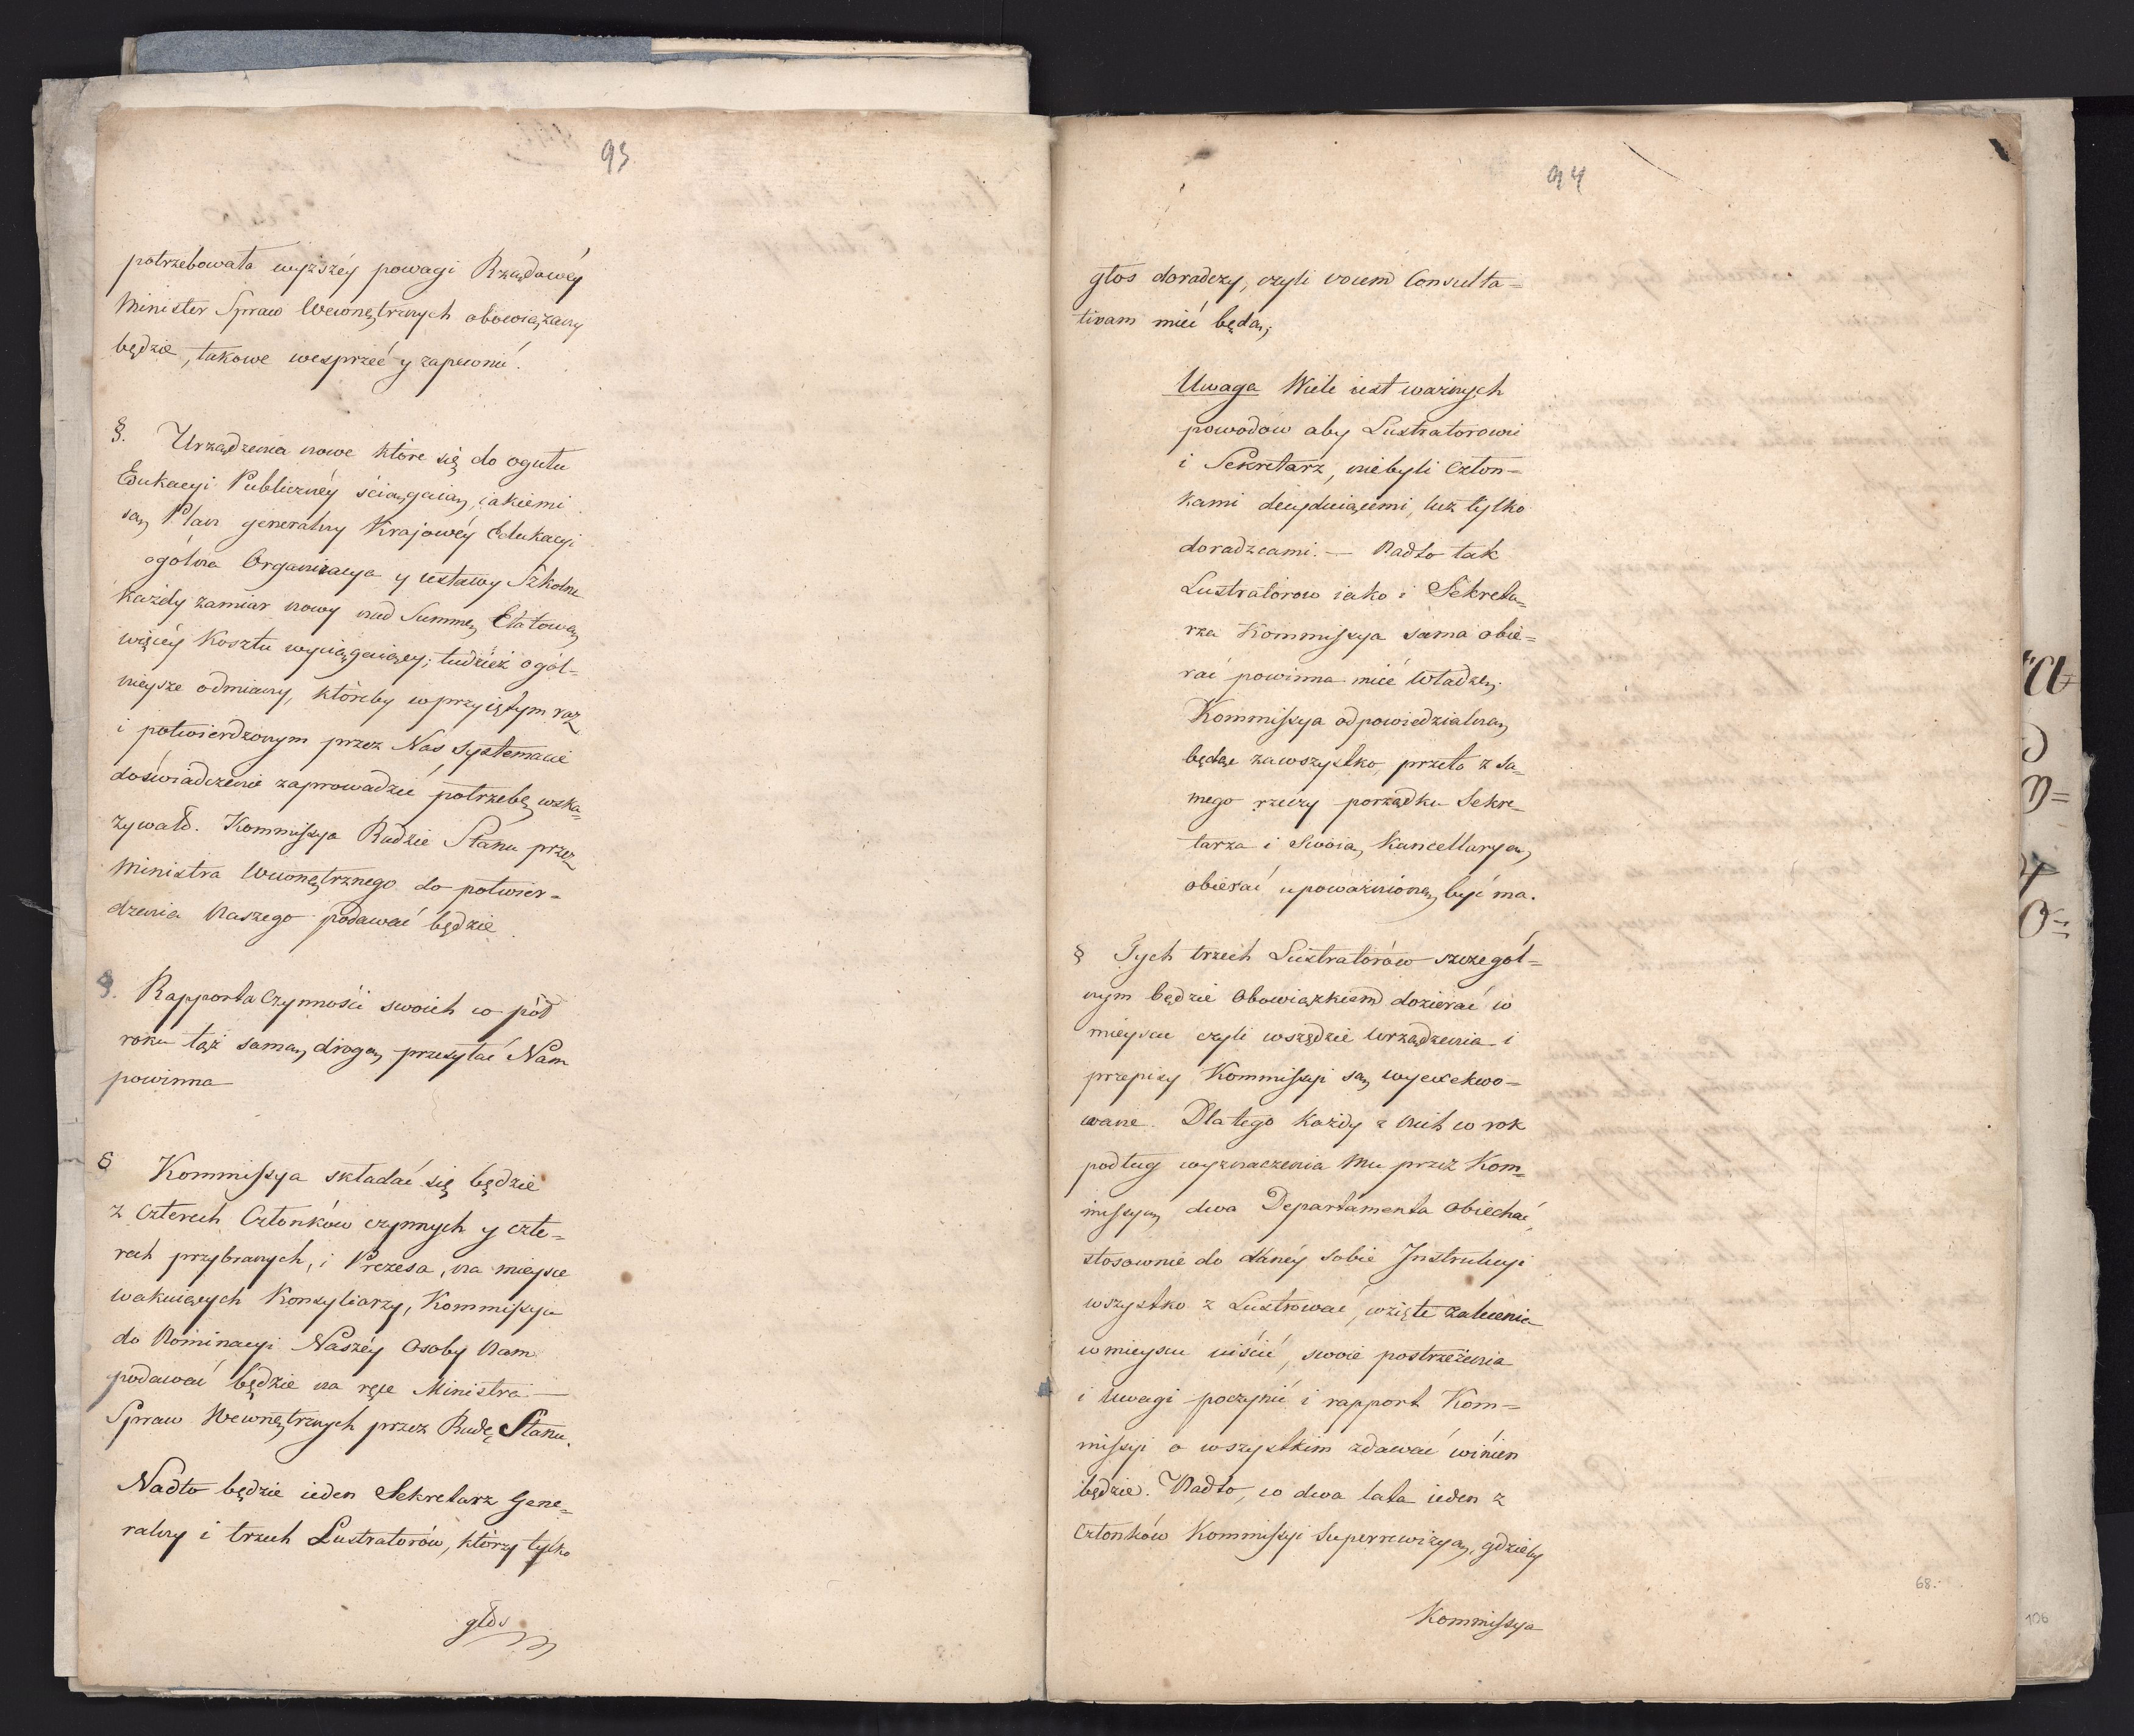 93
potrzebowała wyższéy powagi Rządowéy
Minister Spraw Wewnętrznych obowiązany
będzie, takowe wesprzeć y zapewnić.
§. Urządzenia nowe które się do ogułu
Edukacyi Publicznéy ściągaią, iakiemi
są Plan generalny Krajowéy Edukacyi
ogólna Organizacya y ustawy Szkolne
każdy zamiar nowy nad Summę Etatową
więcéy Kosztu wyciągaiący; tudzież ogól=
nieysze odmiany, któreby w przyiętym raz
i potwierdzonym przez Nas systemacie
doświadczenie zaprowadzić potrzebę wska=
zywało. Kommissya Radzie Stanu przez
Ministra Wewnętrznego do potwier=
dzenia Naszego podawać będzie.
§. Rapporta Czynności swoich co pół
roku tąż samą drogą przesyłać Nam
powinna
§ Kommissya składać się będzie
z czterech Członków czynnych y czte=
rech przybranych, i Prezesa, na mieysce
wakuiących Konsyliarzy, Kommissya
do Nominacyi Naszéy Osoby Nam
podawać będzie na ręce Ministra
Spraw Wewnętrznych przez Radę Stanu.
Nadto będzie ieden Sekretarz Gene=
ralny i trzech Lustratorów, którzy tylko
głos
94
głos doradczy, czyli vocem Consulta=
tivam mieć będą;
Uwaga Wiele iest ważnych
powodów aby Lustratorowie
i Sekretarz, niebyli Człon=
kami decyduiącemi, lecz tylko
doradzcami. — Nadto tak
Lustratorow iako i Sekreta=
rza Kommissya sama obie=
rać powinna mieć władzę;
Kommissya odpowiedzialną
będąc zawszystko, przeto z sa=
mego rzeczy porządku Sekre=
tarza i Swoią Kancellaryą
obierać upoważnioną być ma.
§ Tych trzech Lustratorów szczegól=
nym będzie Obowiązkiem dozierać w
mieyscu czyli wszędzie Urządzenia i
przepisy Kommissyi są wyexekwo=
wane. Dla tego każdy z nich co rok
podług wyznaczenia mu przez Kom=
missyą dwa Departamenta obiechać,
stosownie do danéy sobie Instrukcyi
wszystko z Lustrować, wzięte zalecenia
w mieyscu uiścić, swoie postrzeżenia
i uwagi poczynić i rapport Kom=
missyi o wszystkim zdawać winien
będzie. Nadto, co dwa lata ieden z
Członków Kommissyi Superrewizyą, gdzieby
Kommissya
68.
106